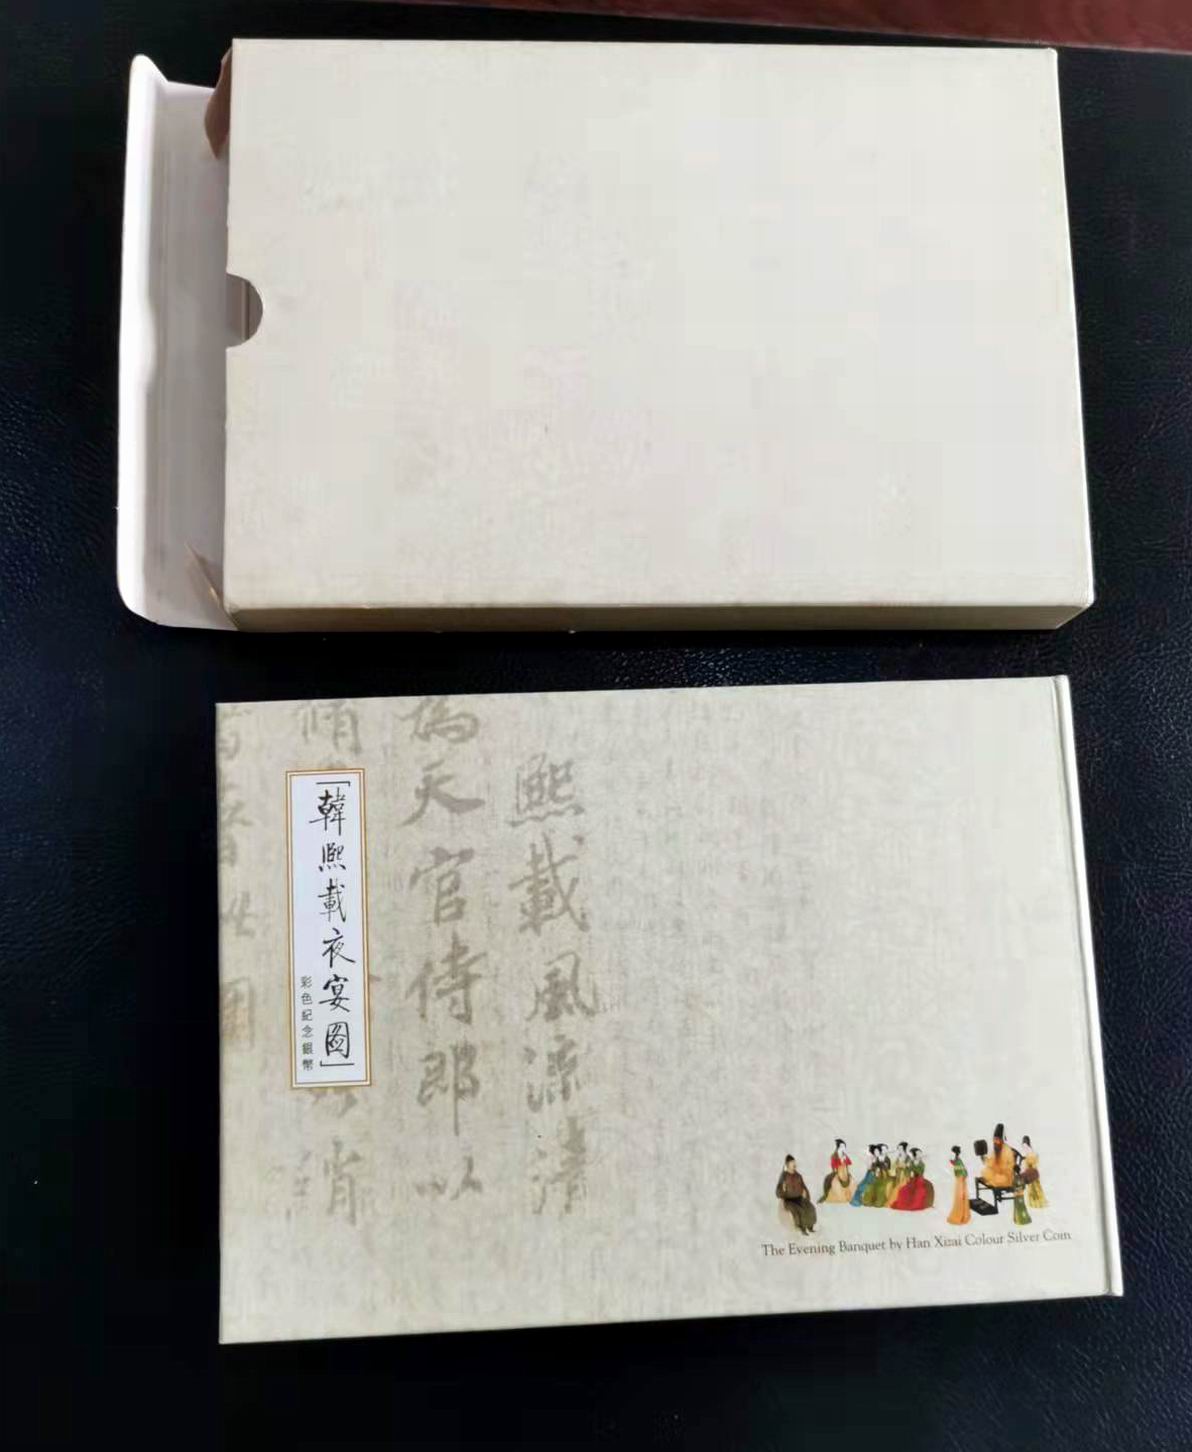 「韓熙載夜宴圖」
彩色紀念銀幣
熙載風流清
為天官侍郎以
The Evening Banquet by Han Xizai Colour Silver Coin